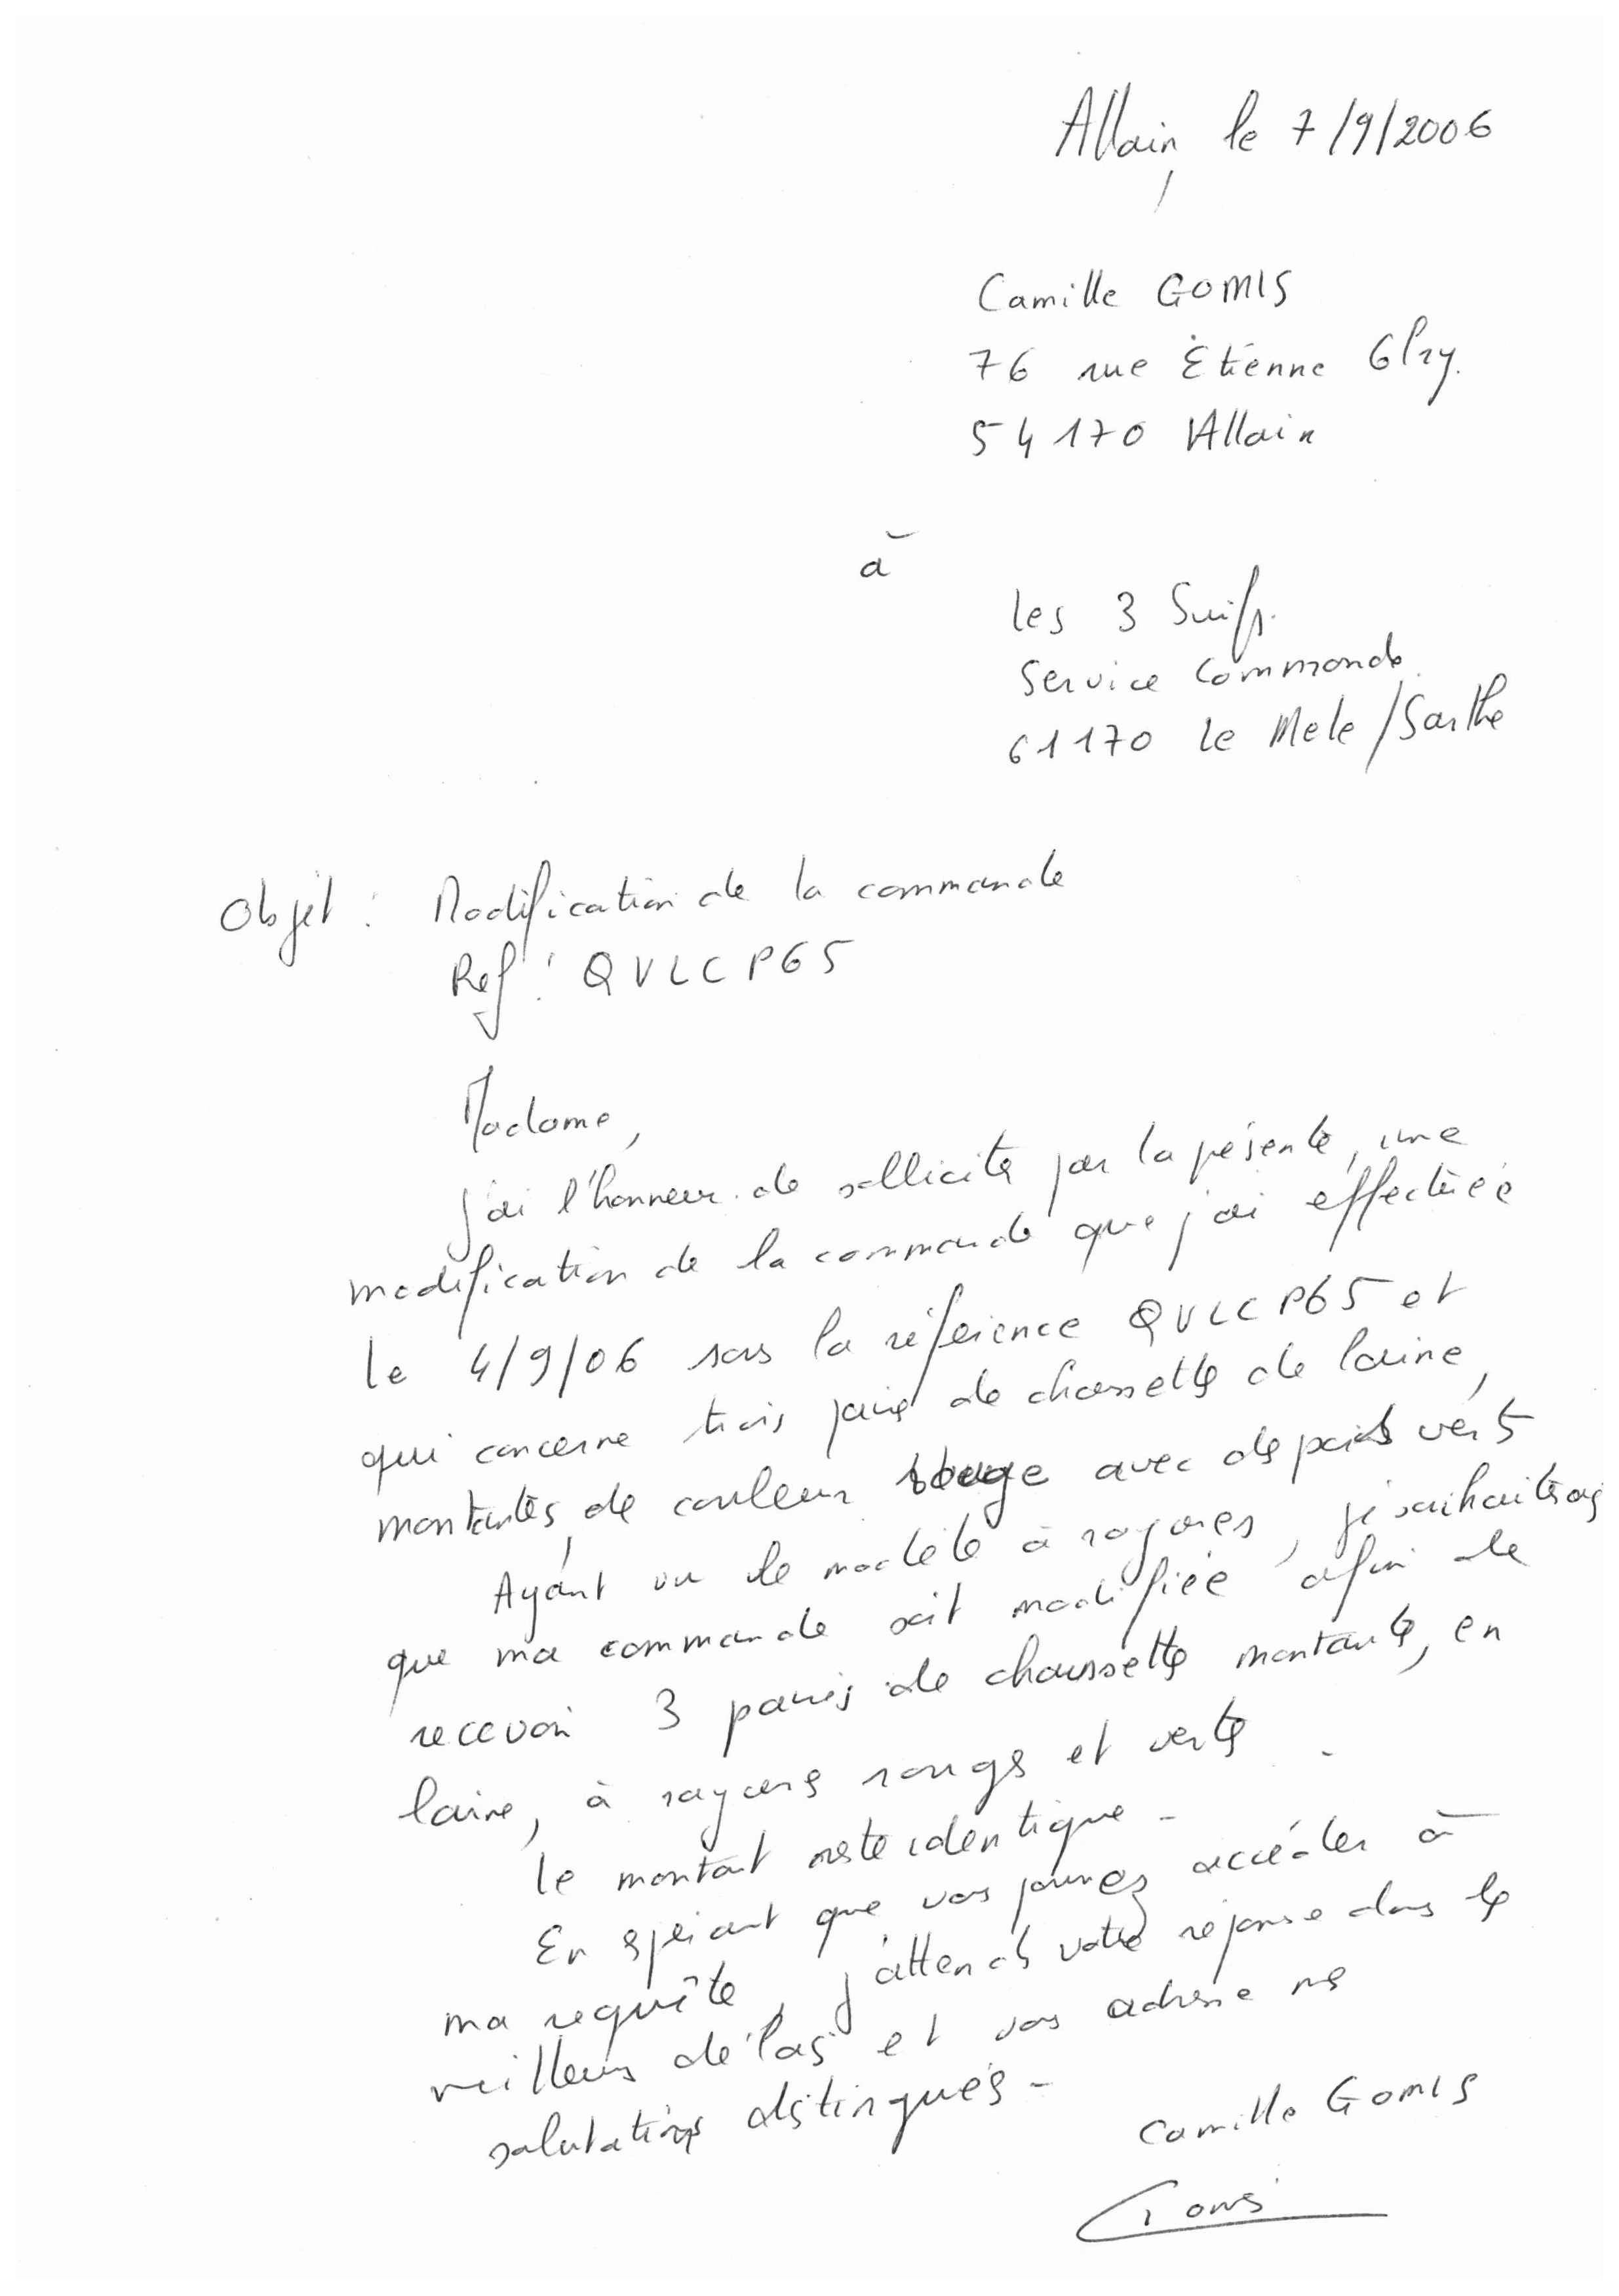 Allain, le 7/9/2006
Camille GOMIS
76 rue Étienne
54170 Allain
à
Les 3 Suisses
Service Commande
61170 Le Mele/Sarthe
Objet : Modification de la commande
Ref : QVLCP65
Madame,
j'ai l'honneur de solliciter par la présente, une
modification de la commande que j'ai effectuée
le 4/9/06 sous la référence QVLCP65 et
qui concerne trois paires de chaussettes de laine,
montantes, de couleur rouge avec des poids verts
Ayant vu le modèle à rayures, je souhaiterais
que ma commande soit modifiée afin de
recevoir 3 paires de chaussettes montantes, en
laine, à rayures rouges et vertes.
Le montant reste identique -
En espérant que vous pourrez accéder à
ma requête, j'attends votre réponse dans les
meilleurs délais et vous adresse mes
salutations distinguées -
Camille GOMIS
Gomis